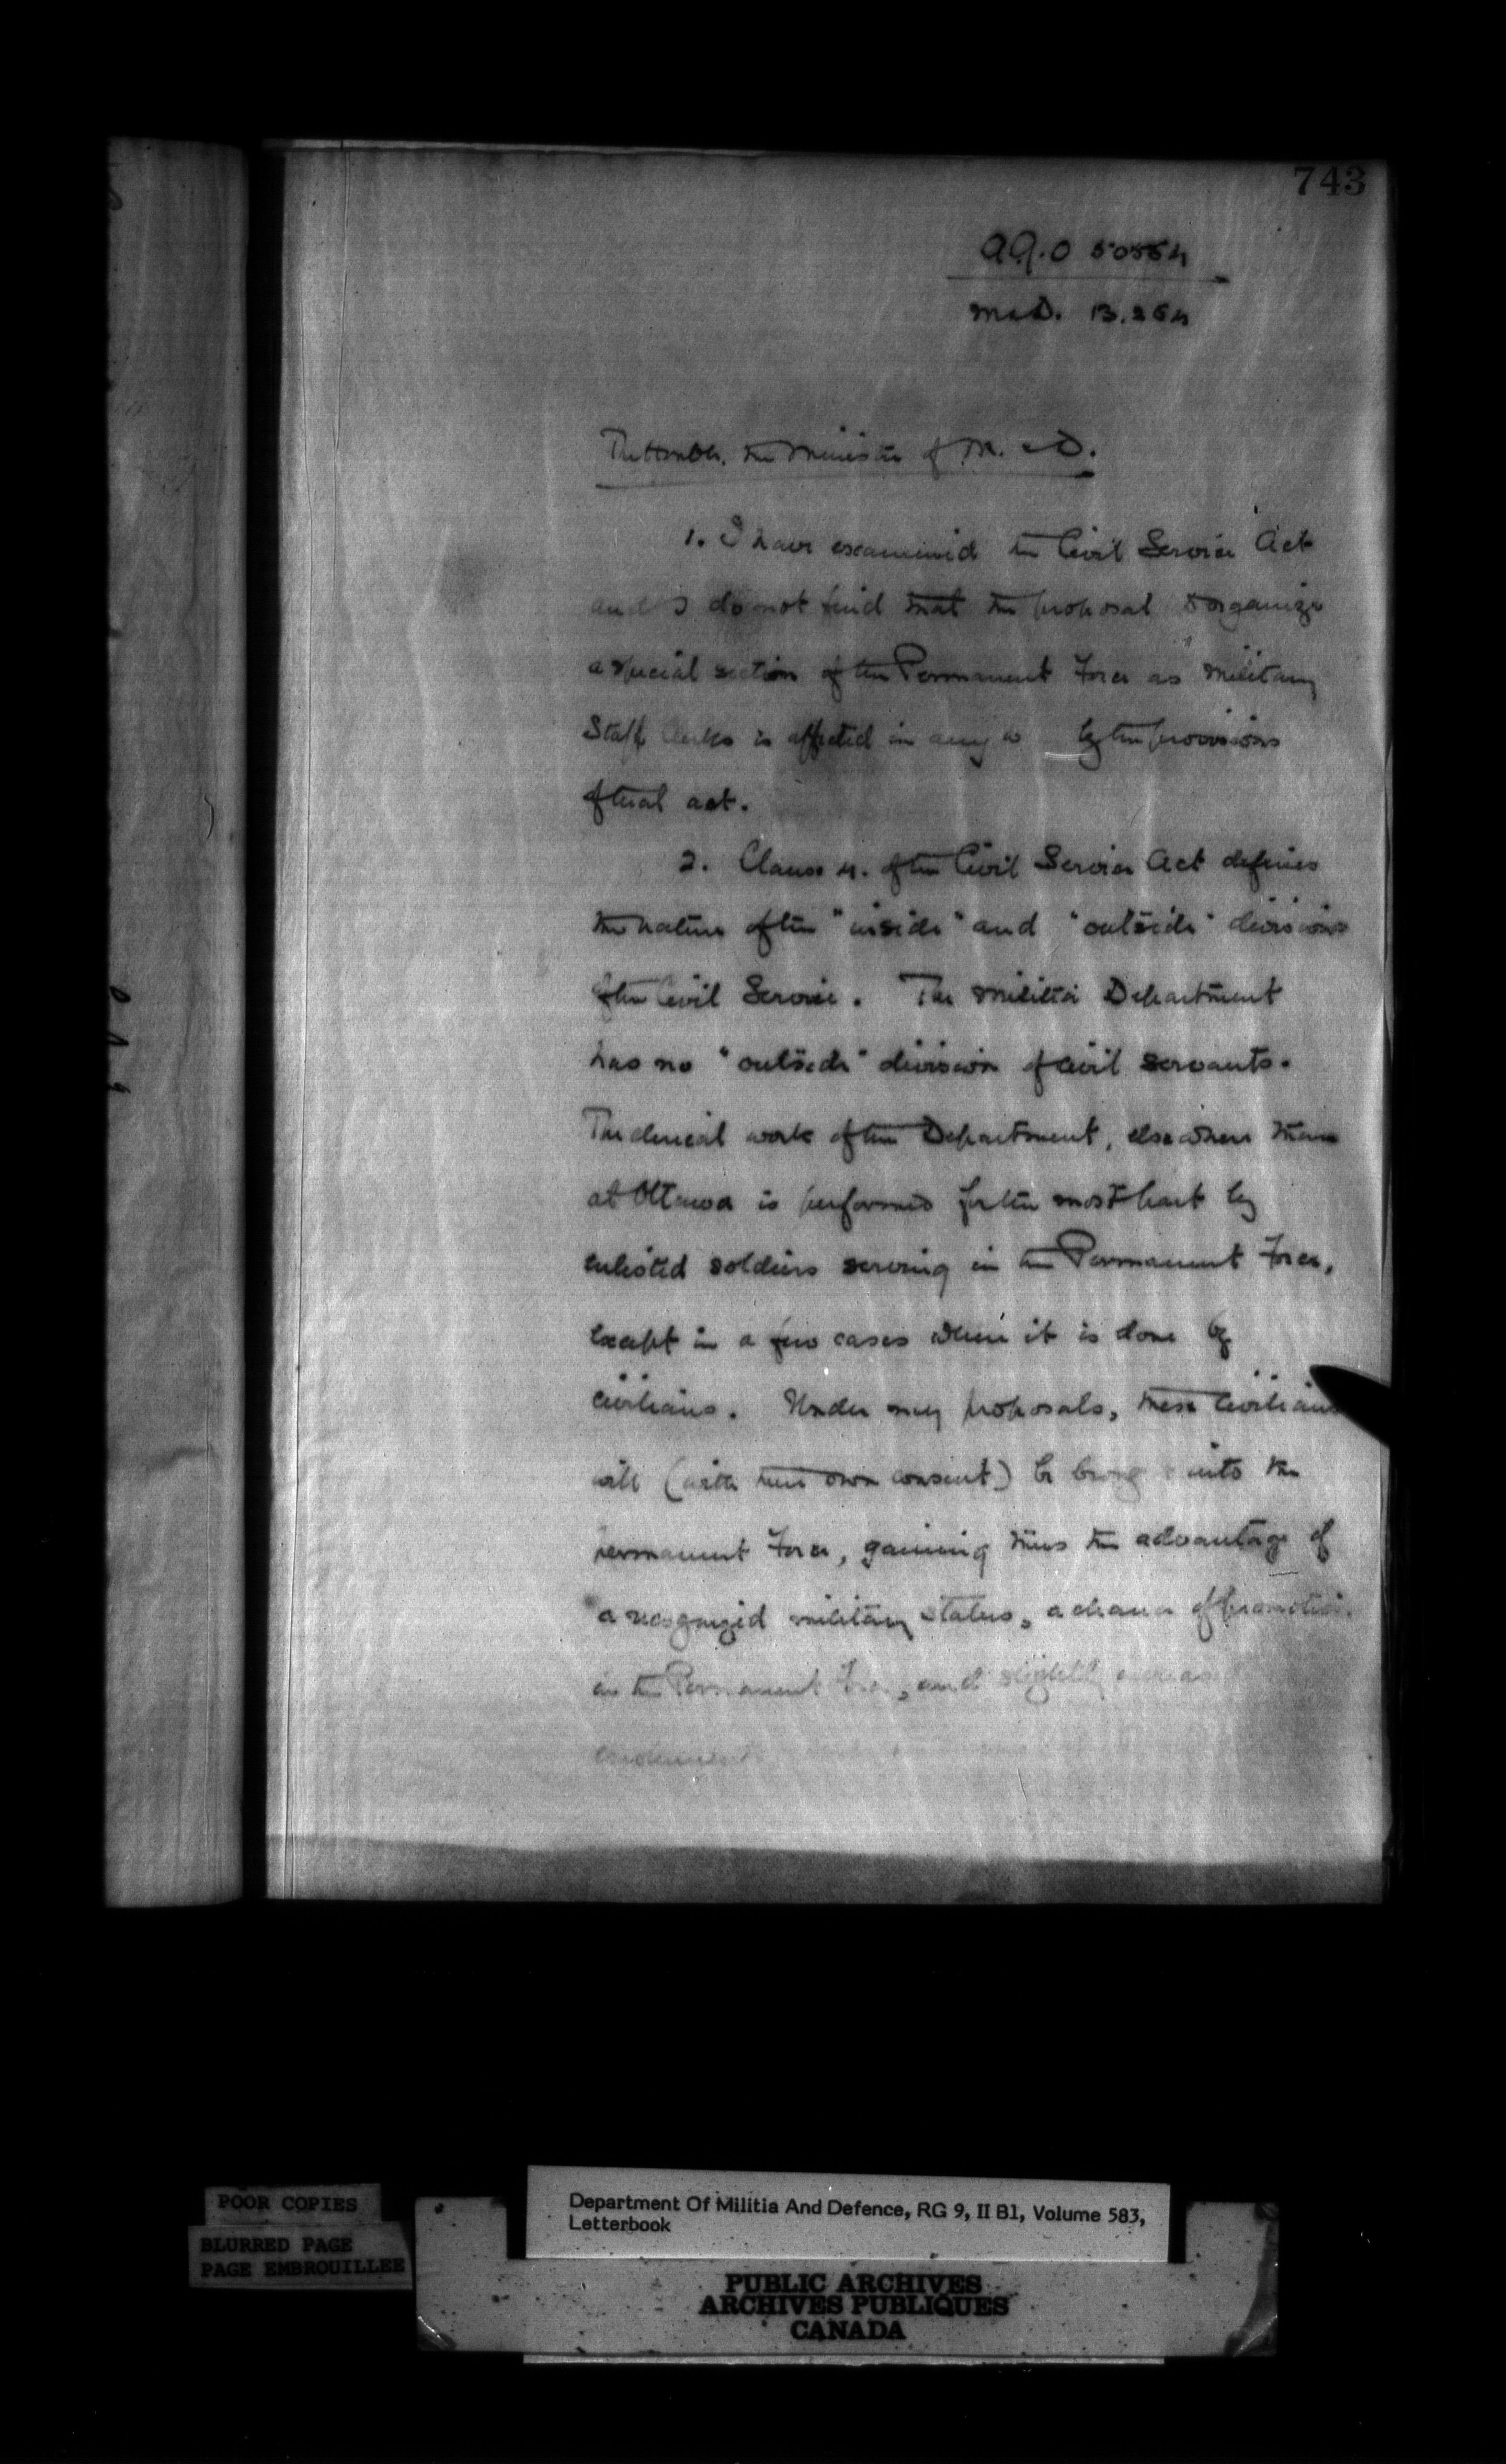 743
A.G.O 50564
M&D. 13.264
The Honble. the Minister of M. & D.
1. I have examined the Civil Service Act
and I do not find that the proposal to organize
a special section of the Permanent Force as Military
Staff Clerks is affected in any w by the provisions
of that act.
2. Clause 4. of the Civil Service Act defines
the nature of the "inside" and "outside" divisions
of the Civil Service. The Militia Department
has no "outside" division of civil servants.
The clerical work of the Department, elsewhere than
at Ottawa is performed for the most part by
enlisted soldiers serving in the Permanent Force,
except in a few cases where it is done by
civilians. Under my proposals, these civilians
will (with their own consent) be brought into the
permanent Force, gaining thus the advantage of
a recognized military status, a chance of promotion
in the Permanent Force, and slightly increased
POOR COPIES
BLURRED PAGE
PAGE EMBROUILLEE
Department Of Militia And Defence, RG 9, II B1, Volume 583,
Letterbook
PUBLIC ARCHIVES
ARCHIVES PUBLIQUES
CANADA